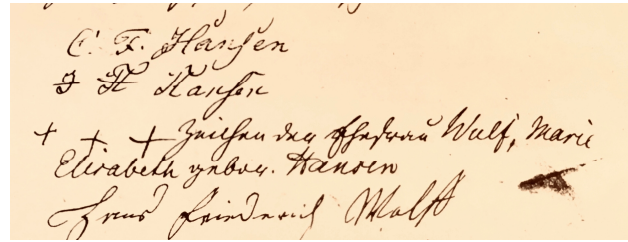 C. F. Hansen
J H Hansen
+ + + Zeichen der Ehefrau Wulf, Marie
Elisabeth gebor. Hansen
Hans Friederich Wulff